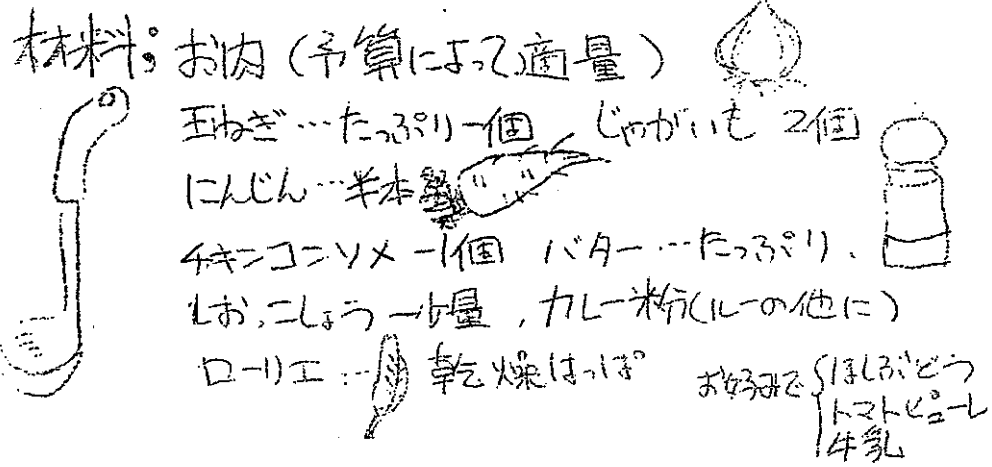 材料; お肉 (予算によって適量)
玉ねぎ…たっぷり一個 じゃがいも 2個
にんじん…半本
チキンコンソメ 一1個 バター…たっぷり、
しお,こしょう 一少量, カレー粉(ルーの他に)
ローリエ… 乾燥はっぱ
お好みで ほしぶどう
トマトピューレ
牛乳